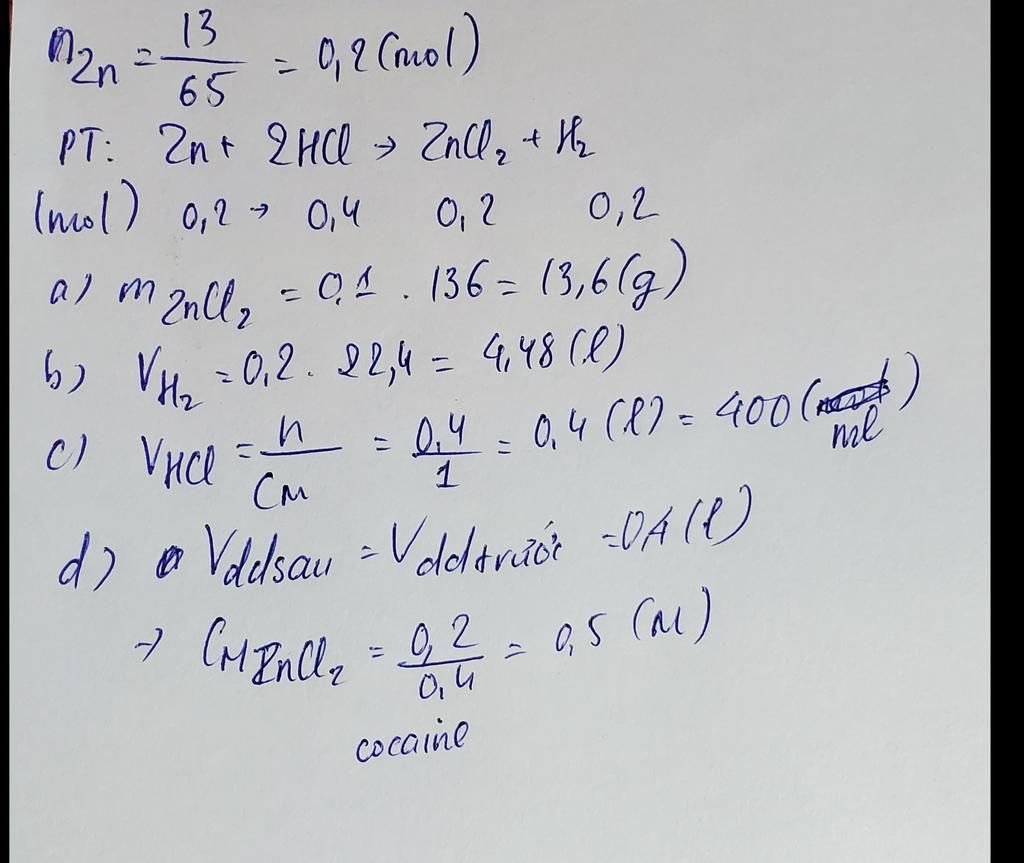 nZn = 13/65 = 0,2 (mol)
PT: Zn + 2HCl → ZnCl₂ + H₂
(mol) 0,2 → 0,4 0,2 0,2
a) mZnCl₂ = 0,1 . 136 = 13,6 (g)
b) VH₂ = 0,2 . 22,4 = 4,48 (l)
c) VHCl = n/CM = 0,4/1 = 0,4 (l) = 400 (ml)
d) Vddsau = Vddtrước = 0,4 (l)
→ CMZnCl₂ = 0,2/0,4 = 0,5 (M)
cocaine